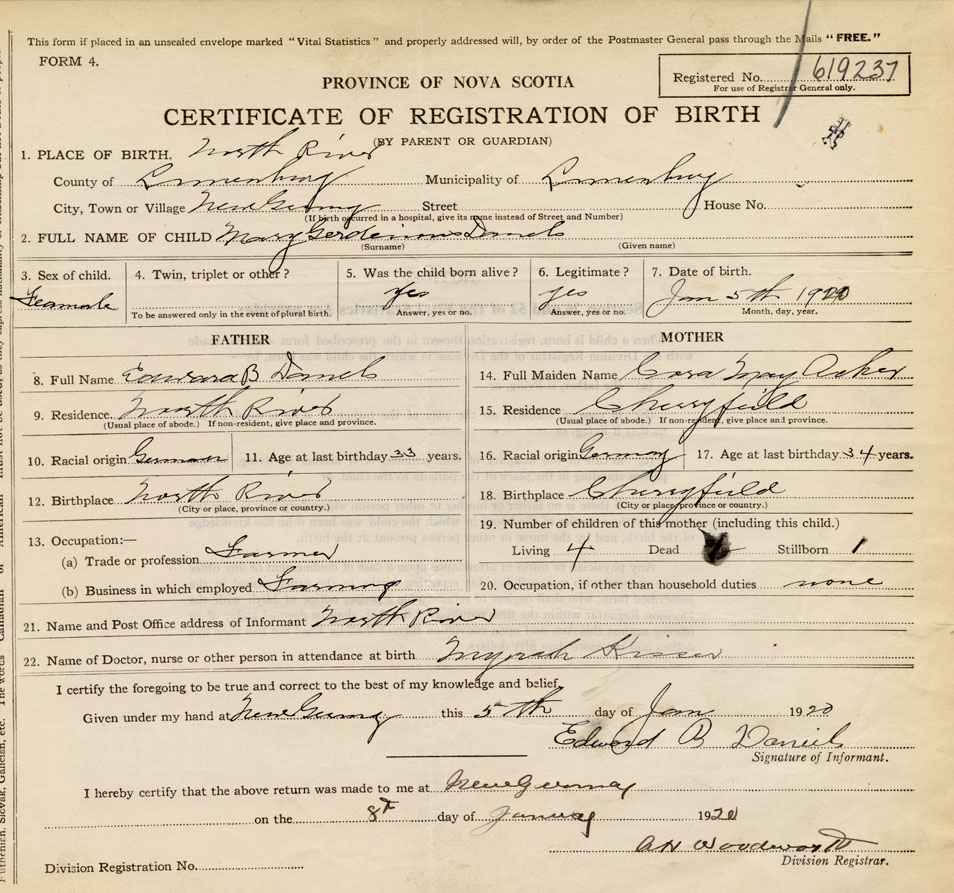 This form if placed in an unsealed envelope marked "Vital Statistics" and properly addressed will, by order of the Postmaster General pass through the Mails "FREE."
FORM 4.
Registered No. 619237
For use of Registrar General only.
PROVINCE OF NOVA SCOTIA
CERTIFICATE OF REGISTRATION OF BIRTH
(BY PARENT OR GUARDIAN)
1. PLACE OF BIRTH. North River
County of Lunenburg Municipality of Lunenburg
City, Town or Village New Germany Street House No.
(If birth occurred in a hospital, give its name instead of Street and Number)
2. FULL NAME OF CHILD Mary Daniels
(Surname) (Given name)
3. Sex of child. 4. Twin, triplet or other? 5. Was the child born alive? 6. Legitimate? 7. Date of birth.
Feamale yes yes Jan 5th 1920
To be answered only in the event of plural birth. Answer, yes or no. Answer, yes or no. Month, day, year.
FATHER MOTHER
8. Full Name Edward B Daniels 14. Full Maiden Name Cora May Acker
9. Residence. North River 15. Residence Cherryfield
(Usual place of abode.) If non-resident, give place and province. (Usual place of abode.) If non-resident, give place and province.
10. Racial origin German 11. Age at last birthday 33 years. 16. Racial origin Germany 17. Age at last birthday 34 years.
12. Birthplace North River 18. Birthplace Cherryfield
(City or place, province or country.) (City or place, province or country.)
13. Occupation:— 19. Number of children of this mother (including this child.)
(a) Trade or profession Farmer Living 4 Dead Stillborn 1
(b) Business in which employed Farming 20. Occupation, if other than household duties none
21. Name and Post Office address of Informant North River
22. Name of Doctor, nurse or other person in attendance at birth
I certify the foregoing to be true and correct to the best of my knowledge and belief.
Given under my hand at New Germany this 5th day of Jan 1920
Edward B Daniel
Signature of Informant.
I hereby certify that the above return was made to me at New Germany
on the 8th day of January 1920
A H Woodworth
Division Registrar.
Division Registration No.